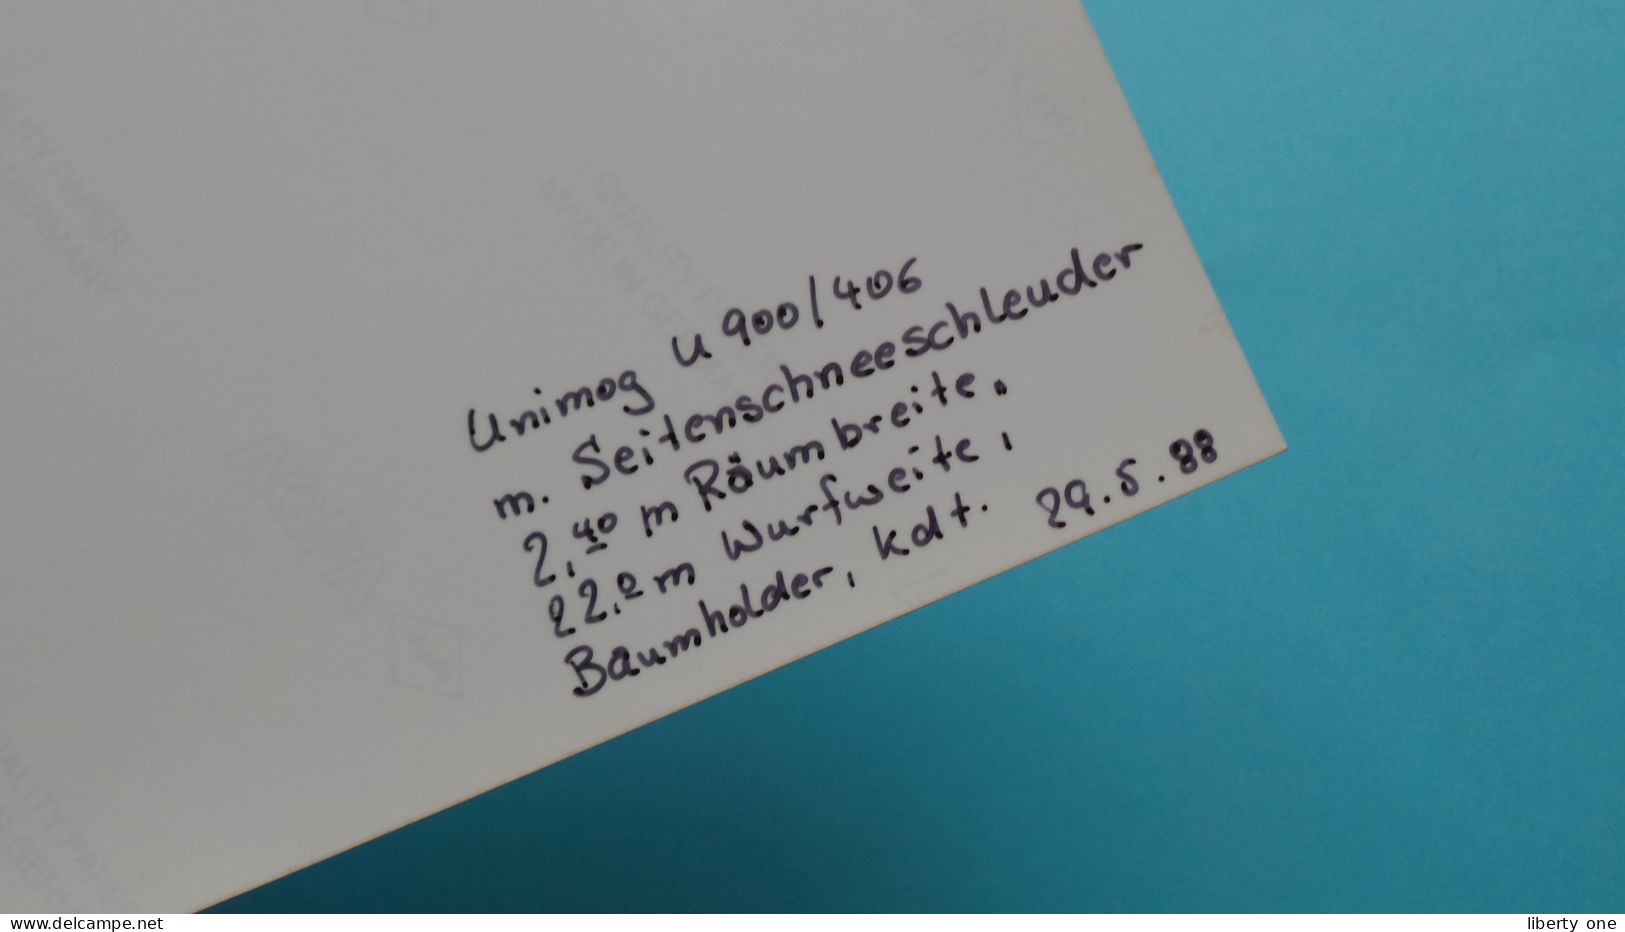 Unimog U 900/406
m. Seitenschneeschleuder
2,40 m Räumbreite,
22,0 m Wurfweite,
Baumholder, Kdt. 29.5.88
QUALITY PAPER
MADE IN GERMANY
AGFA
AGFA
ALITY PAPER
GERMANY
ALITY PAPER
www.delcampe.net
liberty one